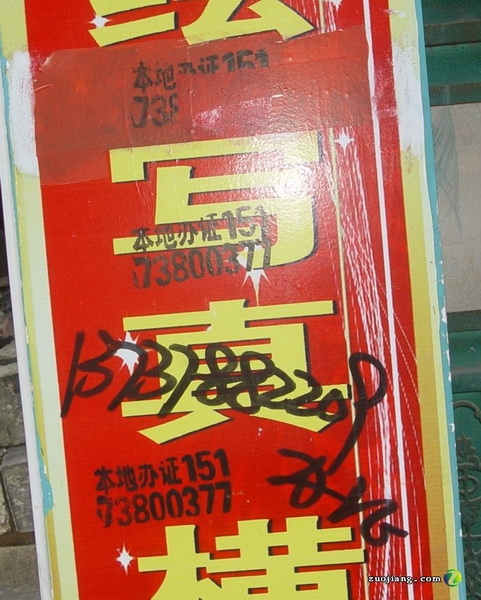 绘
本地办证151
738
写
本地办证151
73800377
真
本地办证151
73800377
办证
横
zuojiang.com